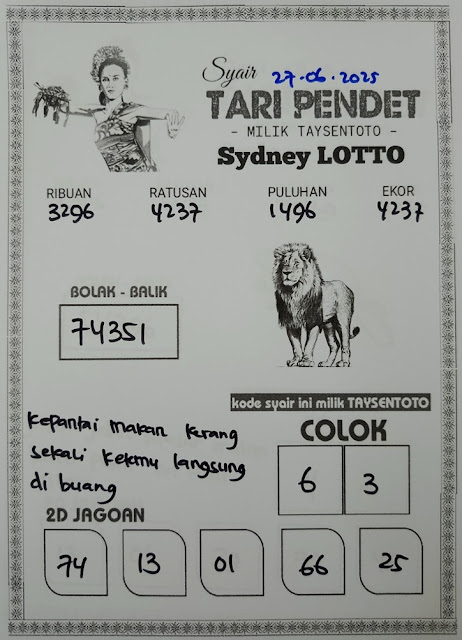 Syair 27-06-2025
TARI PENDET
- MILIK TAYSENTOTO -
Sydney LOTTO
RIBUAN RATUSAN PULUHAN EKOR
3296 4237 1496 4237
BOLAK - BALIK
74351
kode syair ini milik TAYSENTOTO
kepantai makan kerang
sekali ketemu langsung
di buang
COLOK
6 3
2D JAGOAN
74 13 01 66 25